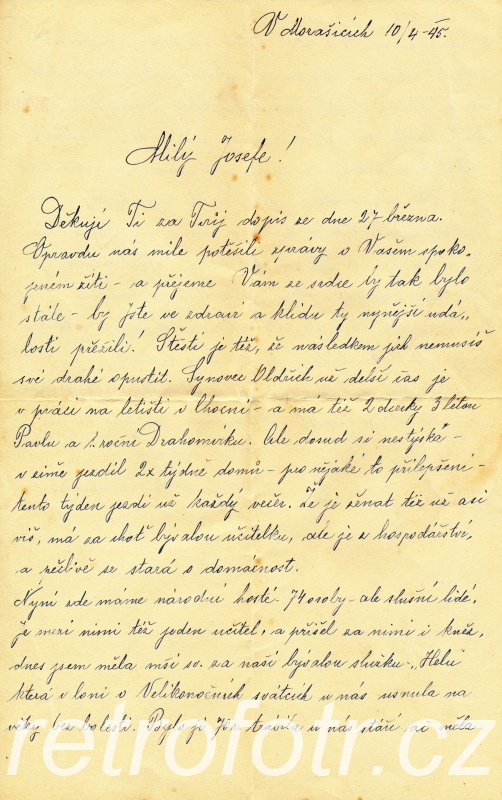 V Morašicích 10/4-45.
Milý Josefe!
Děkuji Ti za Tvůj dopis ze dne 27 března.
Opravdu nás mile potěšili zprávy o Vašem spoko„
jeném žití - a přejeme Vám ze srdce by tak bylo
stále - by jste ve zdraví a klidu ty nynější udá„
losti přežili! Štěstí je též, že následkem jich nemusíš
své drahé opustit. Synovec Oldřich už delší čas je
v práci na letisti v Chocni - a má též 2 dcerky 3 letou
Pavlu a 1. roční Drahomírku. Ale dosud si nestýská -
v zimě jezdil 2x týdně domů - pro nějaké to přilepšení -
tento týden jezdí už každý večer. Že je ženat též už asi
víš, má za choť bývalou učitelku, ale je z hospodářství,
a pečlivě se stará o domacnost.
Nyní zde máme národní hosté 74 osoby - ale slušní lidé,
je mezi nimi též jeden učitel, a přišel za nimi i kněz,
dnes jsem měla mši sv. za naší bývalou služku - „Helu“
která v loni o Velikonočních svátcích u nás usnula na
věky bez bolesti. Bylo jí trávila u nás stáří, měla
retrofotr.cz